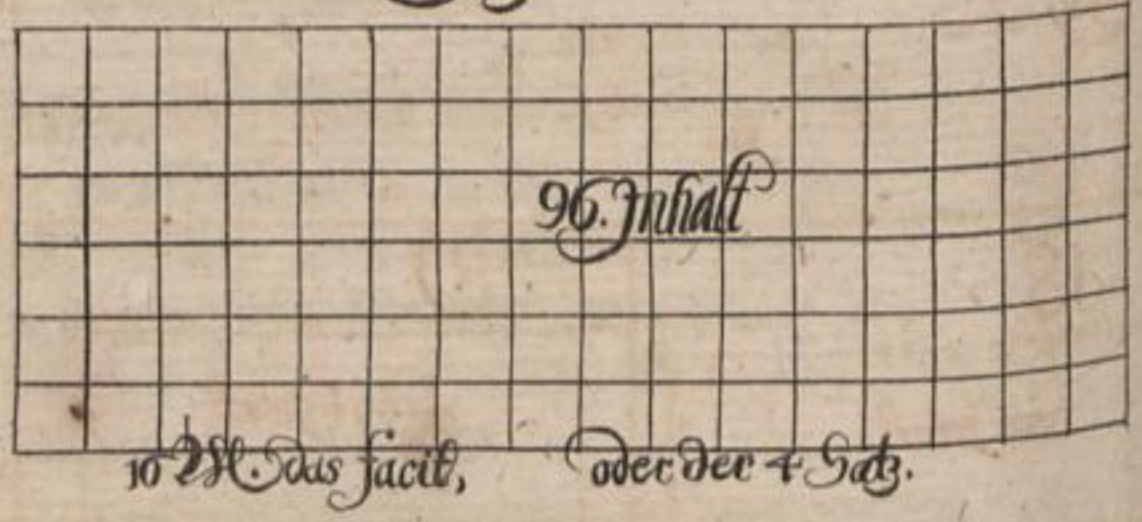 96. Inhalt
10 M. das facit, oder der 4 Satz.